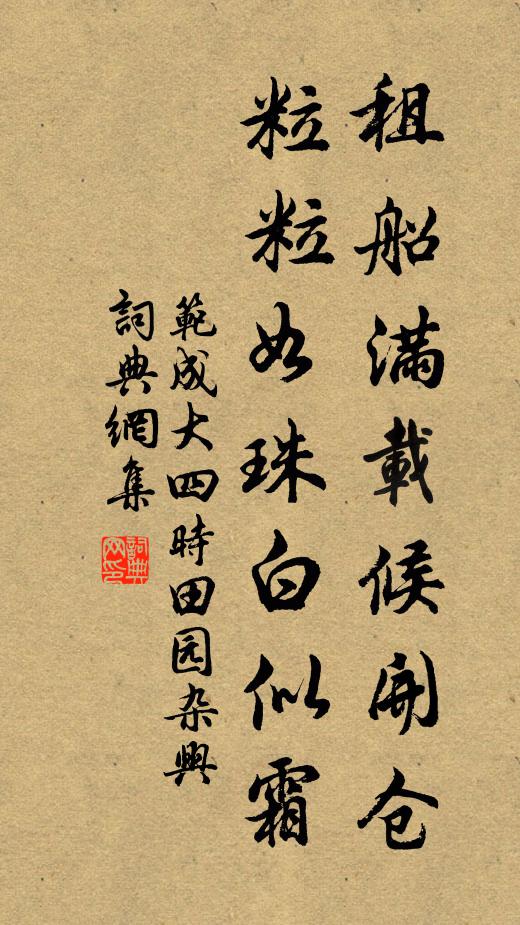 租船满載候開仓
粒粒如珠白似霜
範成大四時田园杂興
詞典網集
詞典
网印